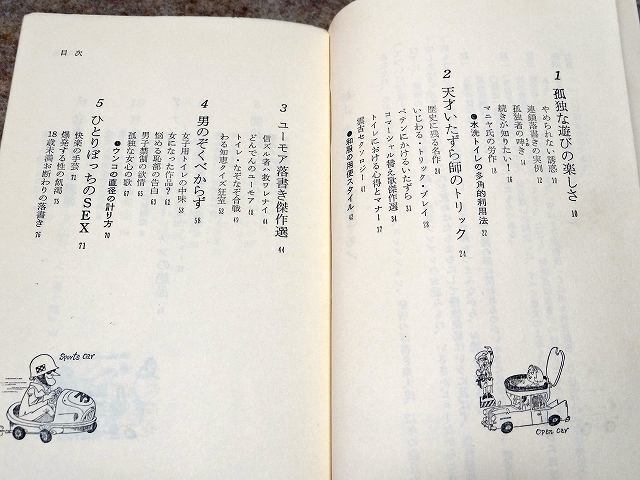 1 孤独な遊びの楽しさ 10
やめられない誘惑
連鎖落書きの実例 12
孤独者の呻き 14
続きが知りたい! 16
マニヤ氏の労作 18
●水洗トイレの多角的利用法 22
2 天才いたずら師のトリック 24
歴史に残る名作 24
いじわる・トリック・プレイ 28
ペテンにかけるいたずら 31
コマーシャル替え歌傑作選 34
トイレにおける心得とマナー 37
雲古セクソロジー 41
●和服の用便スタイル 42
Open car
目次
3 ユーモア落書き傑作選 44
信ズル者ハ救ワレナイ
どんでんのユーモア 48
トイレ・なぞなぞ合戦
わる知恵クイズ狂室 52
4 男のぞくべからず 58
女子用トイレの中味 58
女になった作品?
悩める恥部の告白
男子禁制の欲情 65
孤独な女心の歌 67
●ウンコの直径の計り方 70
5 ひとりぼっちのSEX 71
快楽の手芸 71
爆発する性の飢渇 75
18歳未満お断わりの落書き 76
Sports car